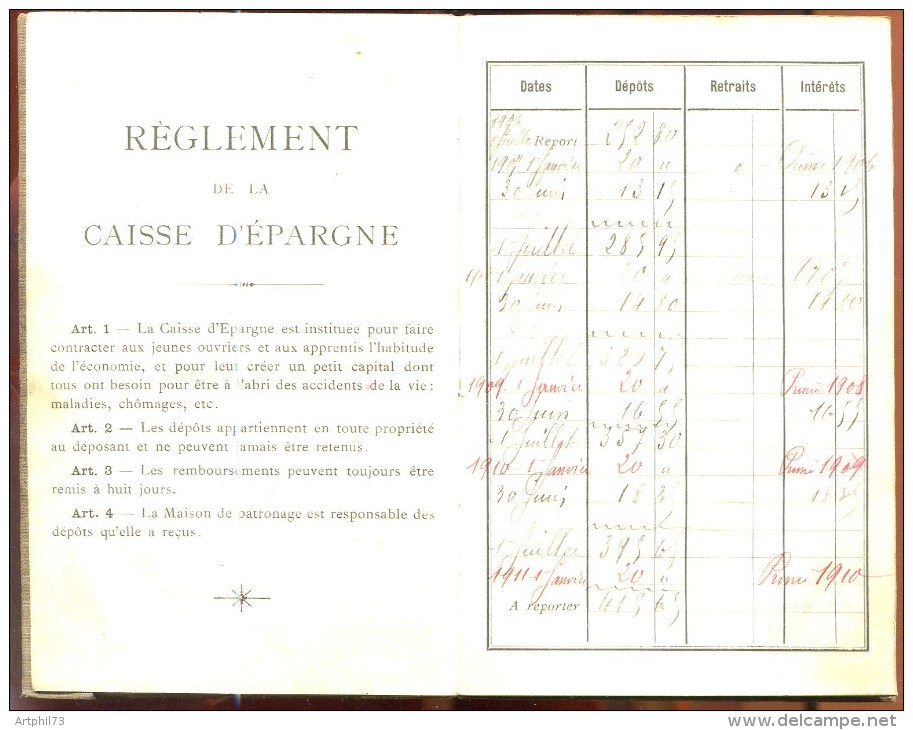 RÈGLEMENT
DE LA
CAISSE D'ÉPARGNE
Art. 1 — La Caisse d'Epargne est instituée pour faire
contracter aux jeunes ouvriers et aux apprentis l'habitude
de l'économie, et pour leur créer un petit capital dont
tous ont besoin pour être à l'abri des accidents de la vie :
maladies, chômages, etc.
Art. 2 — Les dépôts appartiennent en toute propriété
au déposant et ne peuvent jamais être retenus.
Art. 3 — Les remboursements peuvent toujours être
remis à huit jours.
Art. 4 — La Maison de patronage est responsable des
dépôts qu'elle a reçus.
Dates Dépôts Retraits Intérêts
1906
1 Juillet Report 252 80
1907 1 Janvier 20 " " Prime 1906
30 Juin 13 15 13 15
1 Juillet 285 95
1 Janvier 20 " 1907
30 Juin 14 80 14 80
1 Juillet
1909 1 Janvier 20 " Prime 1908
30 Juin 16 55 16 55
1 Juillet 357 30
1910 1 Janvier 20 " Prime 1909
30 Juin 18 35 18 35
1 Juillet 395 65
1911 1 Janvier 20 " Prime 1910
A reporter 415 65
Artphil73
www.delcampe.net